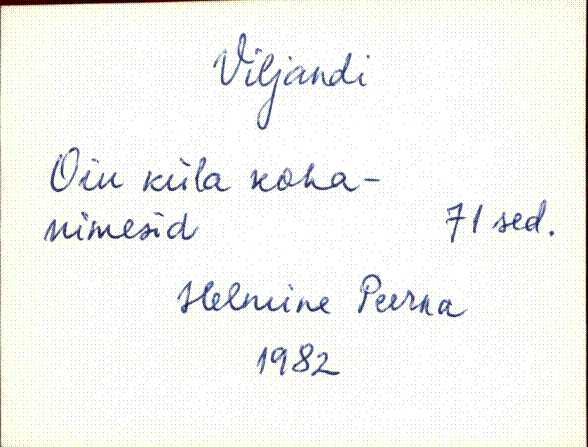 Viljandi
Oiu küla koha-
nimesid 71 sed.
Helmine Purka
1982